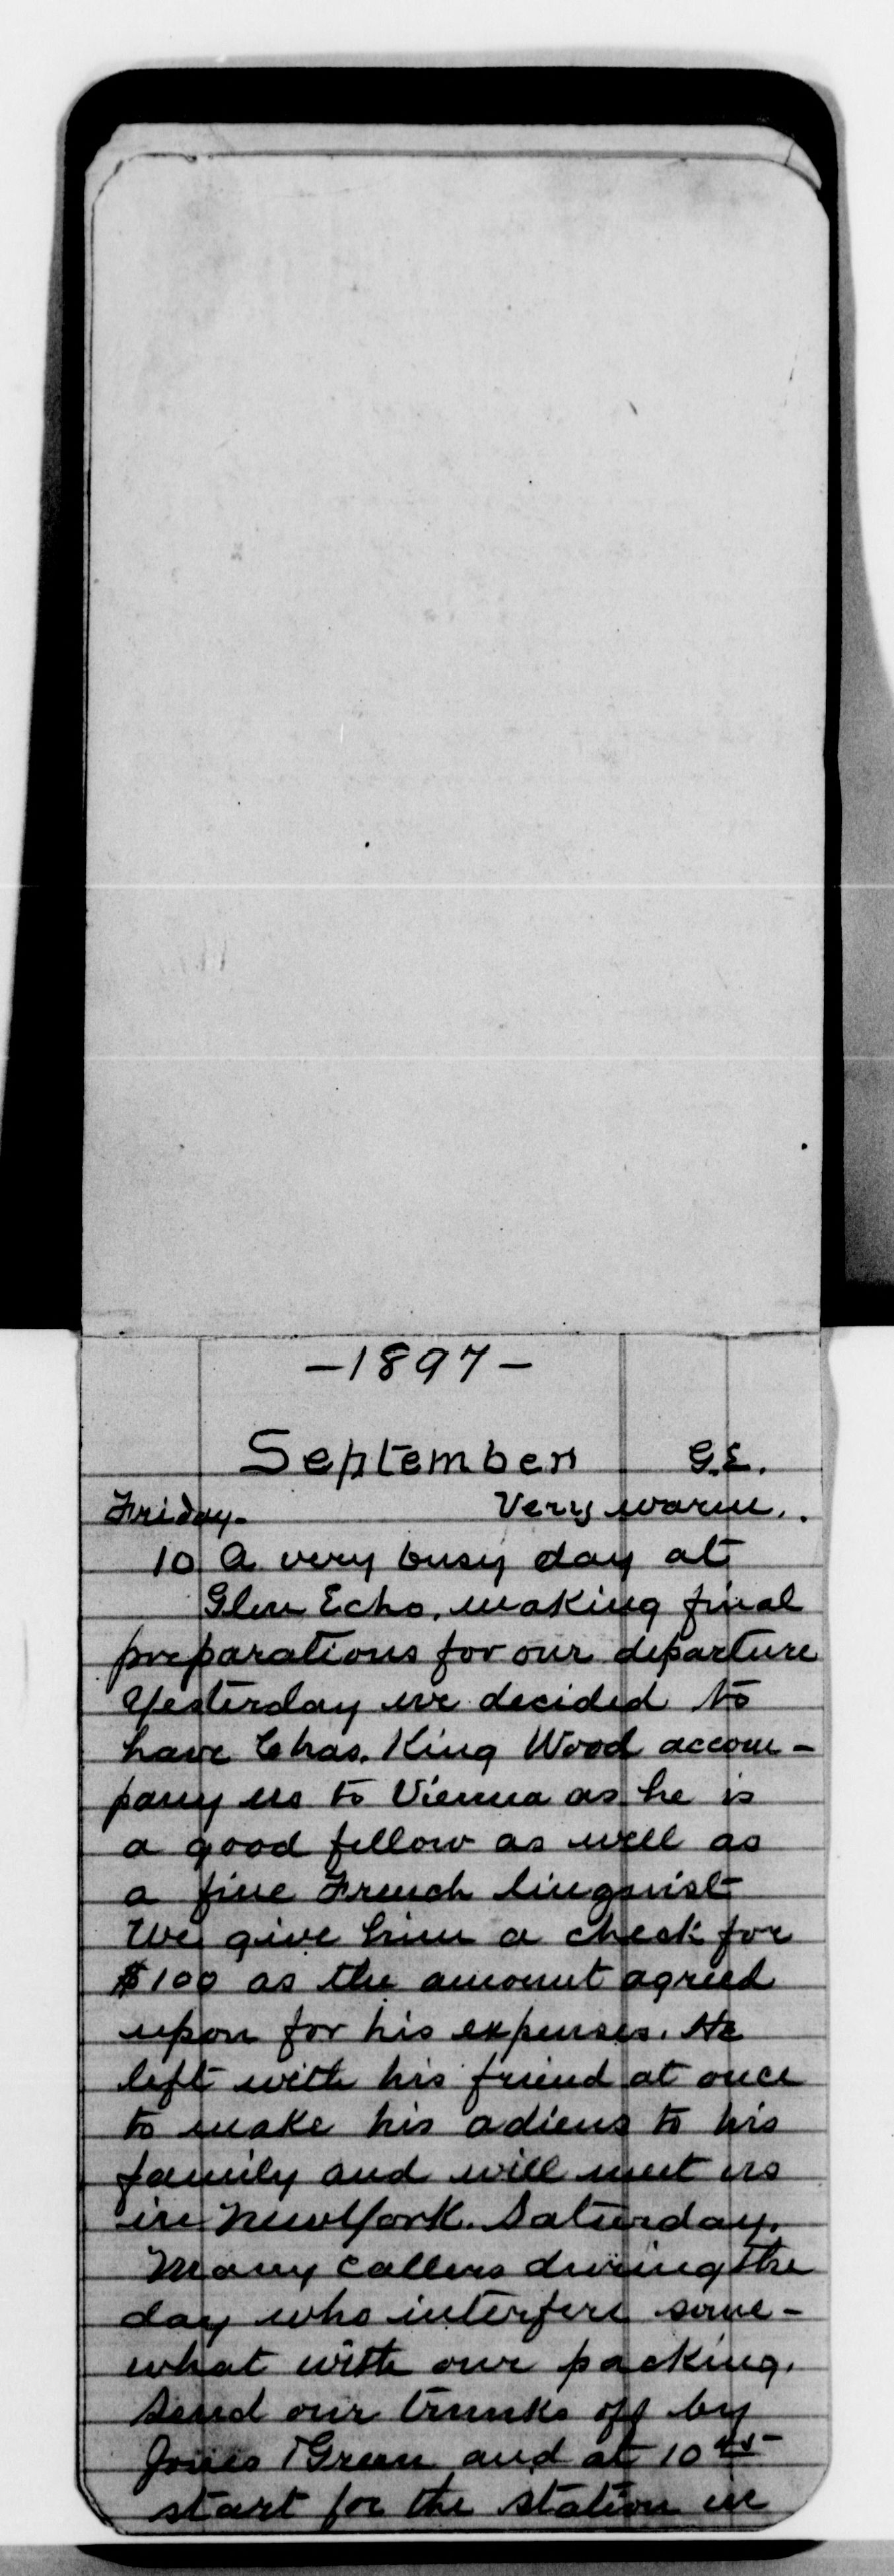 -1897-
September G.E.
Friday. Very warm.
10 A very busy day at
Glen Echo, making final
preparations for our departure
Yesterday we decided to
have Chas. King Wood accom-
pany us to Vienna as he is
a good fellow as well as
a fine French linguist
We give him a check for
$100 as the amount agreed
upon for his expenses. He
left with his friend at once
to make his adieus to his
family and will meet us
in New York. Saturday.
Many callers during the
day who interfere some-
what with our packing.
Send our trunks off by
Jones Green and at 10 45
start for the station in